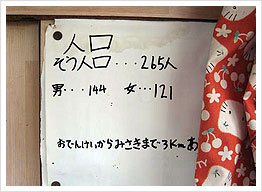 人口
そう人口・・・265人
男・・・144 女・・・121
おでんけいからみさきまで3Kmあ